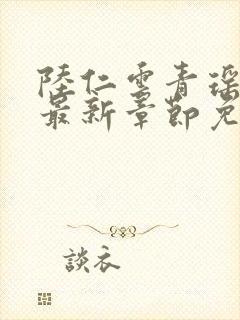 陸仁雲青瑶
最新章節免
談衣